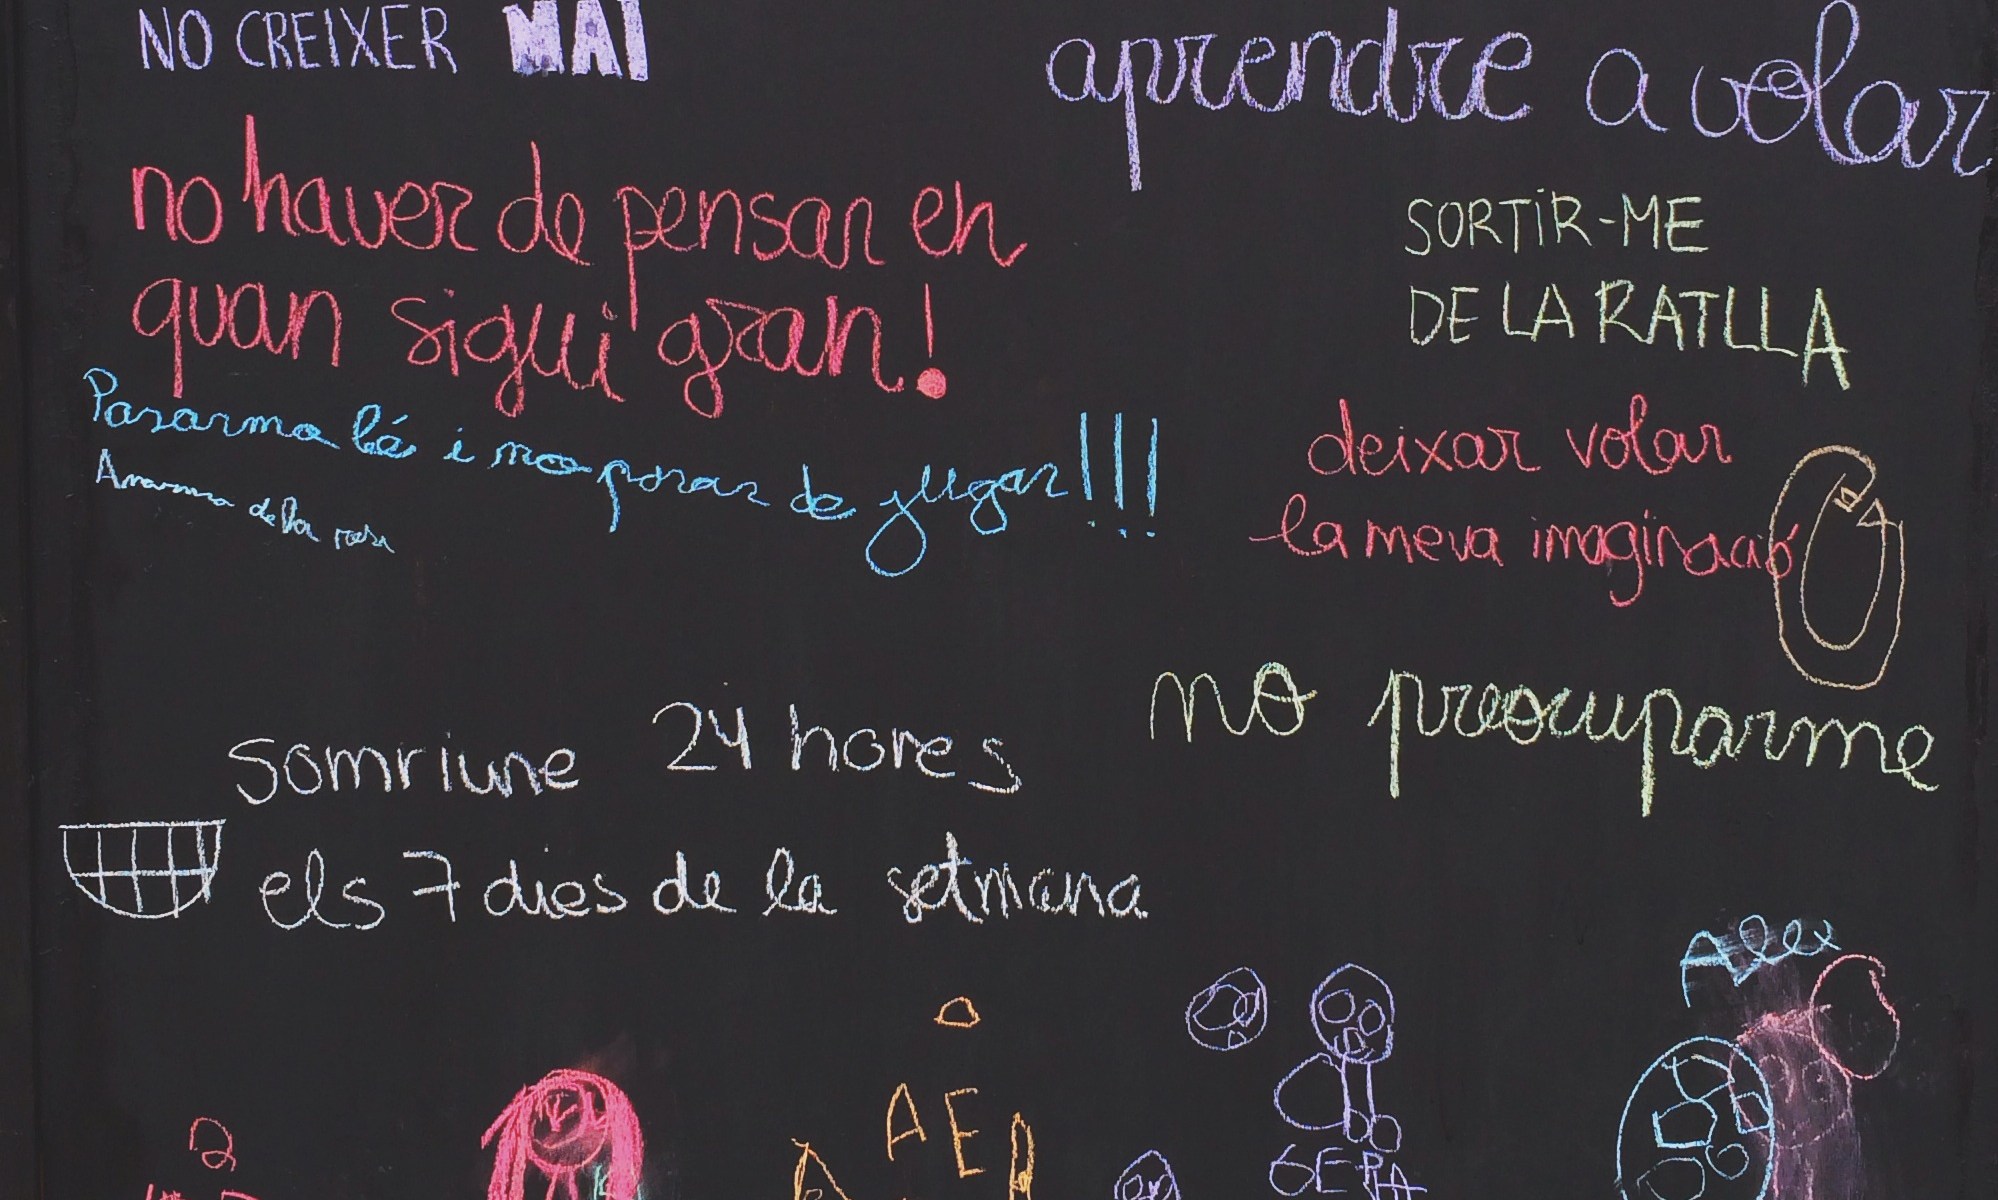 NO CREIXER MAI
aprendre a volar
no haver de pensar en
quan sigui gran!
SORTIR-ME
DE LA RATLLA
Pasarma bé i no parar de jugar!!!
deixar volar
la meva imaginació
no preocuparme
somriure 24 hores
els 7 dies de la setmana
Alex
2
AER
GERA